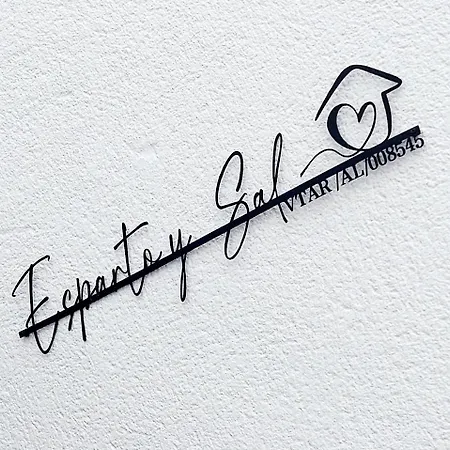 Esparto y Sal
VTAR/AL/008545